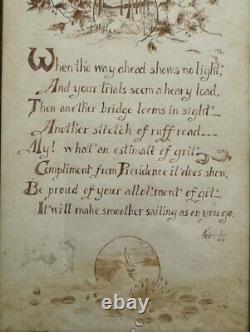 When the way ahead shows no light,
And your trials seem a heavy load,
Then another bridge looms in sight
Another stretch of ruff road---
My! what an estimate of grit,
Compliment from Providence it does show,
Be proud of your allotment of git
It will make smoother sailing as on you go.